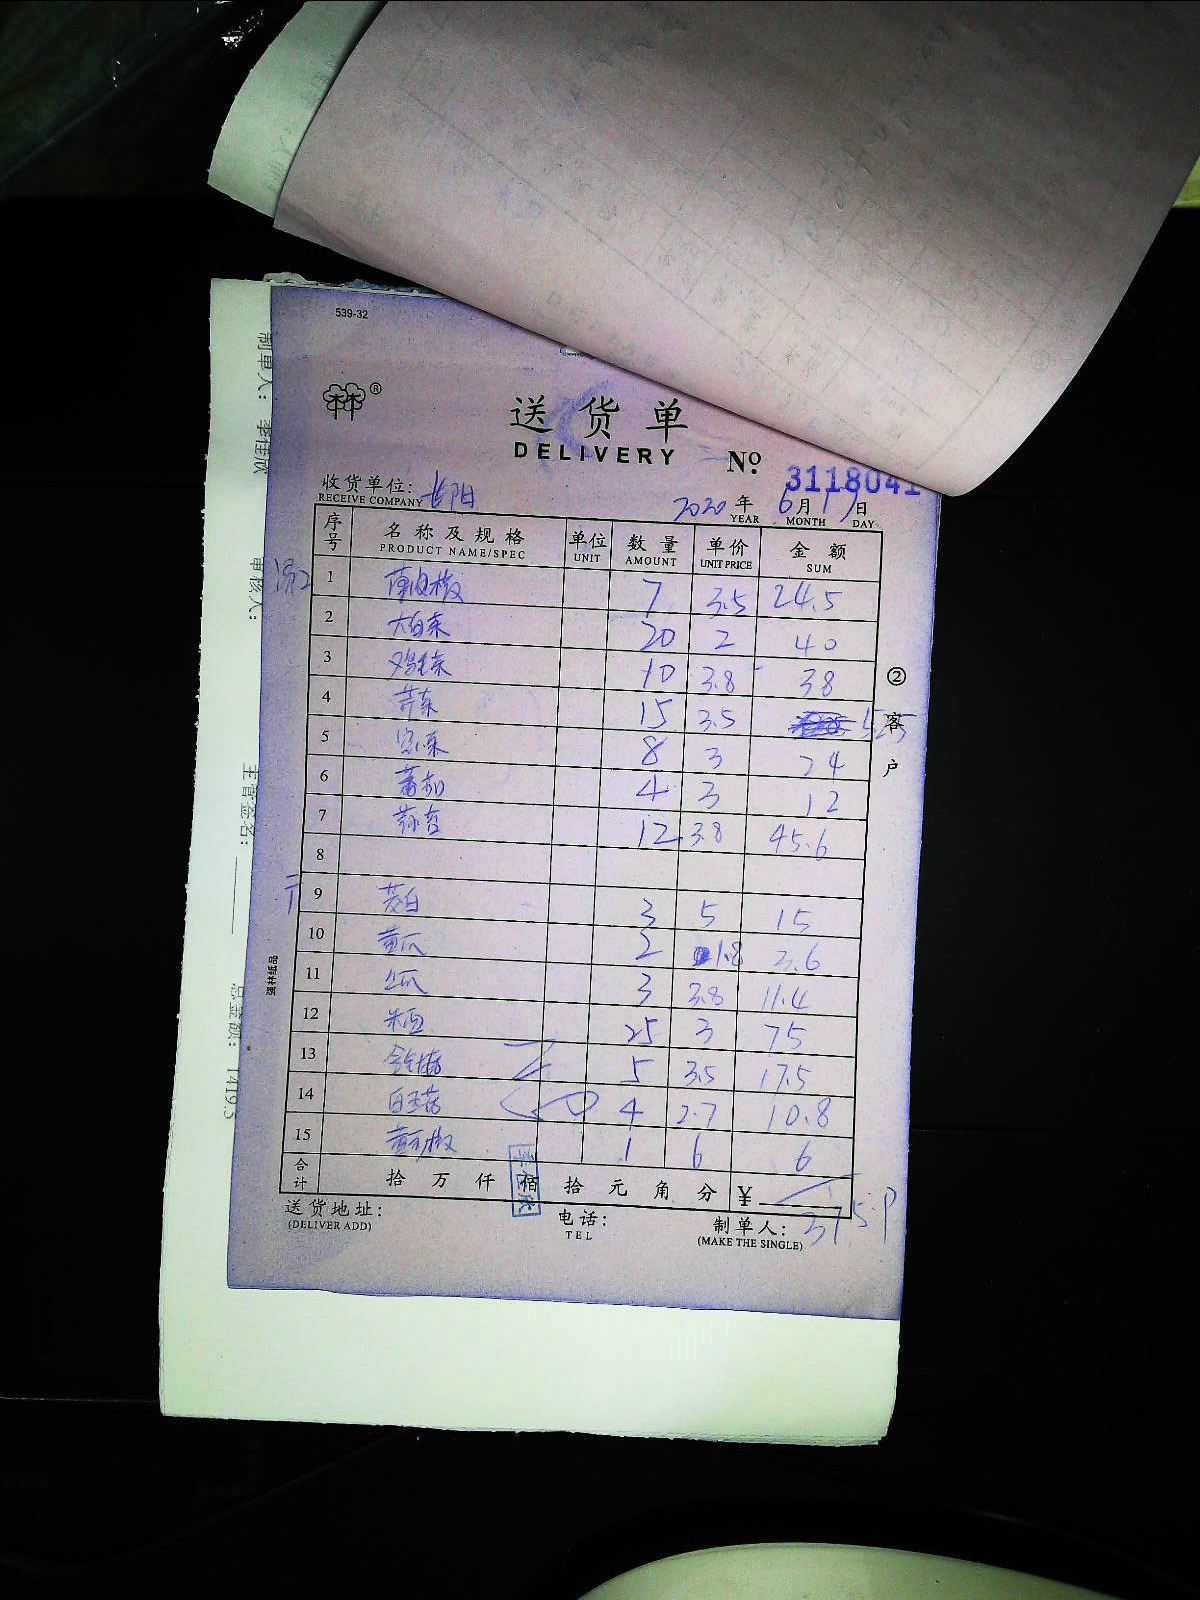 539-32
®
送货单
DELIVERY
No. 3118041
收货单位: 长阳
RECEIVE COMPANY
2020 年 6 月 19 日
YEAR MONTH DAY
序号 名称及规格 单位 数量 单价 金额
PRODUCT NAME/SPEC UNIT AMOUNT UNIT PRICE SUM
1 7 3.5 24.5
2 大白菜 20 2 40
3 鸡毛菜 10 3.8 38
4 芹菜 15 3.5 52.5
5 8 3 24
6 4 3 12
7 12 3.8 45.6
8
9 茭白 3 5 15
10 黄瓜 2 1.8 3.6
11 3 3.8 11.4
12 25 3 75
13 金针菇 5 3.5 17.5
14 白玉菇 4 2.7 10.8
15 1 6 6
合计 拾 万 仟 佰 拾 元 角 分 ¥ 375.9
送货地址:
(DELIVER ADD)
电话:
TEL
制单人:
(MAKE THE SINGLE)
② 客户
强林纸品
制单人: 李佳欣
审核人:
主管签名:
总金额: 1419.5